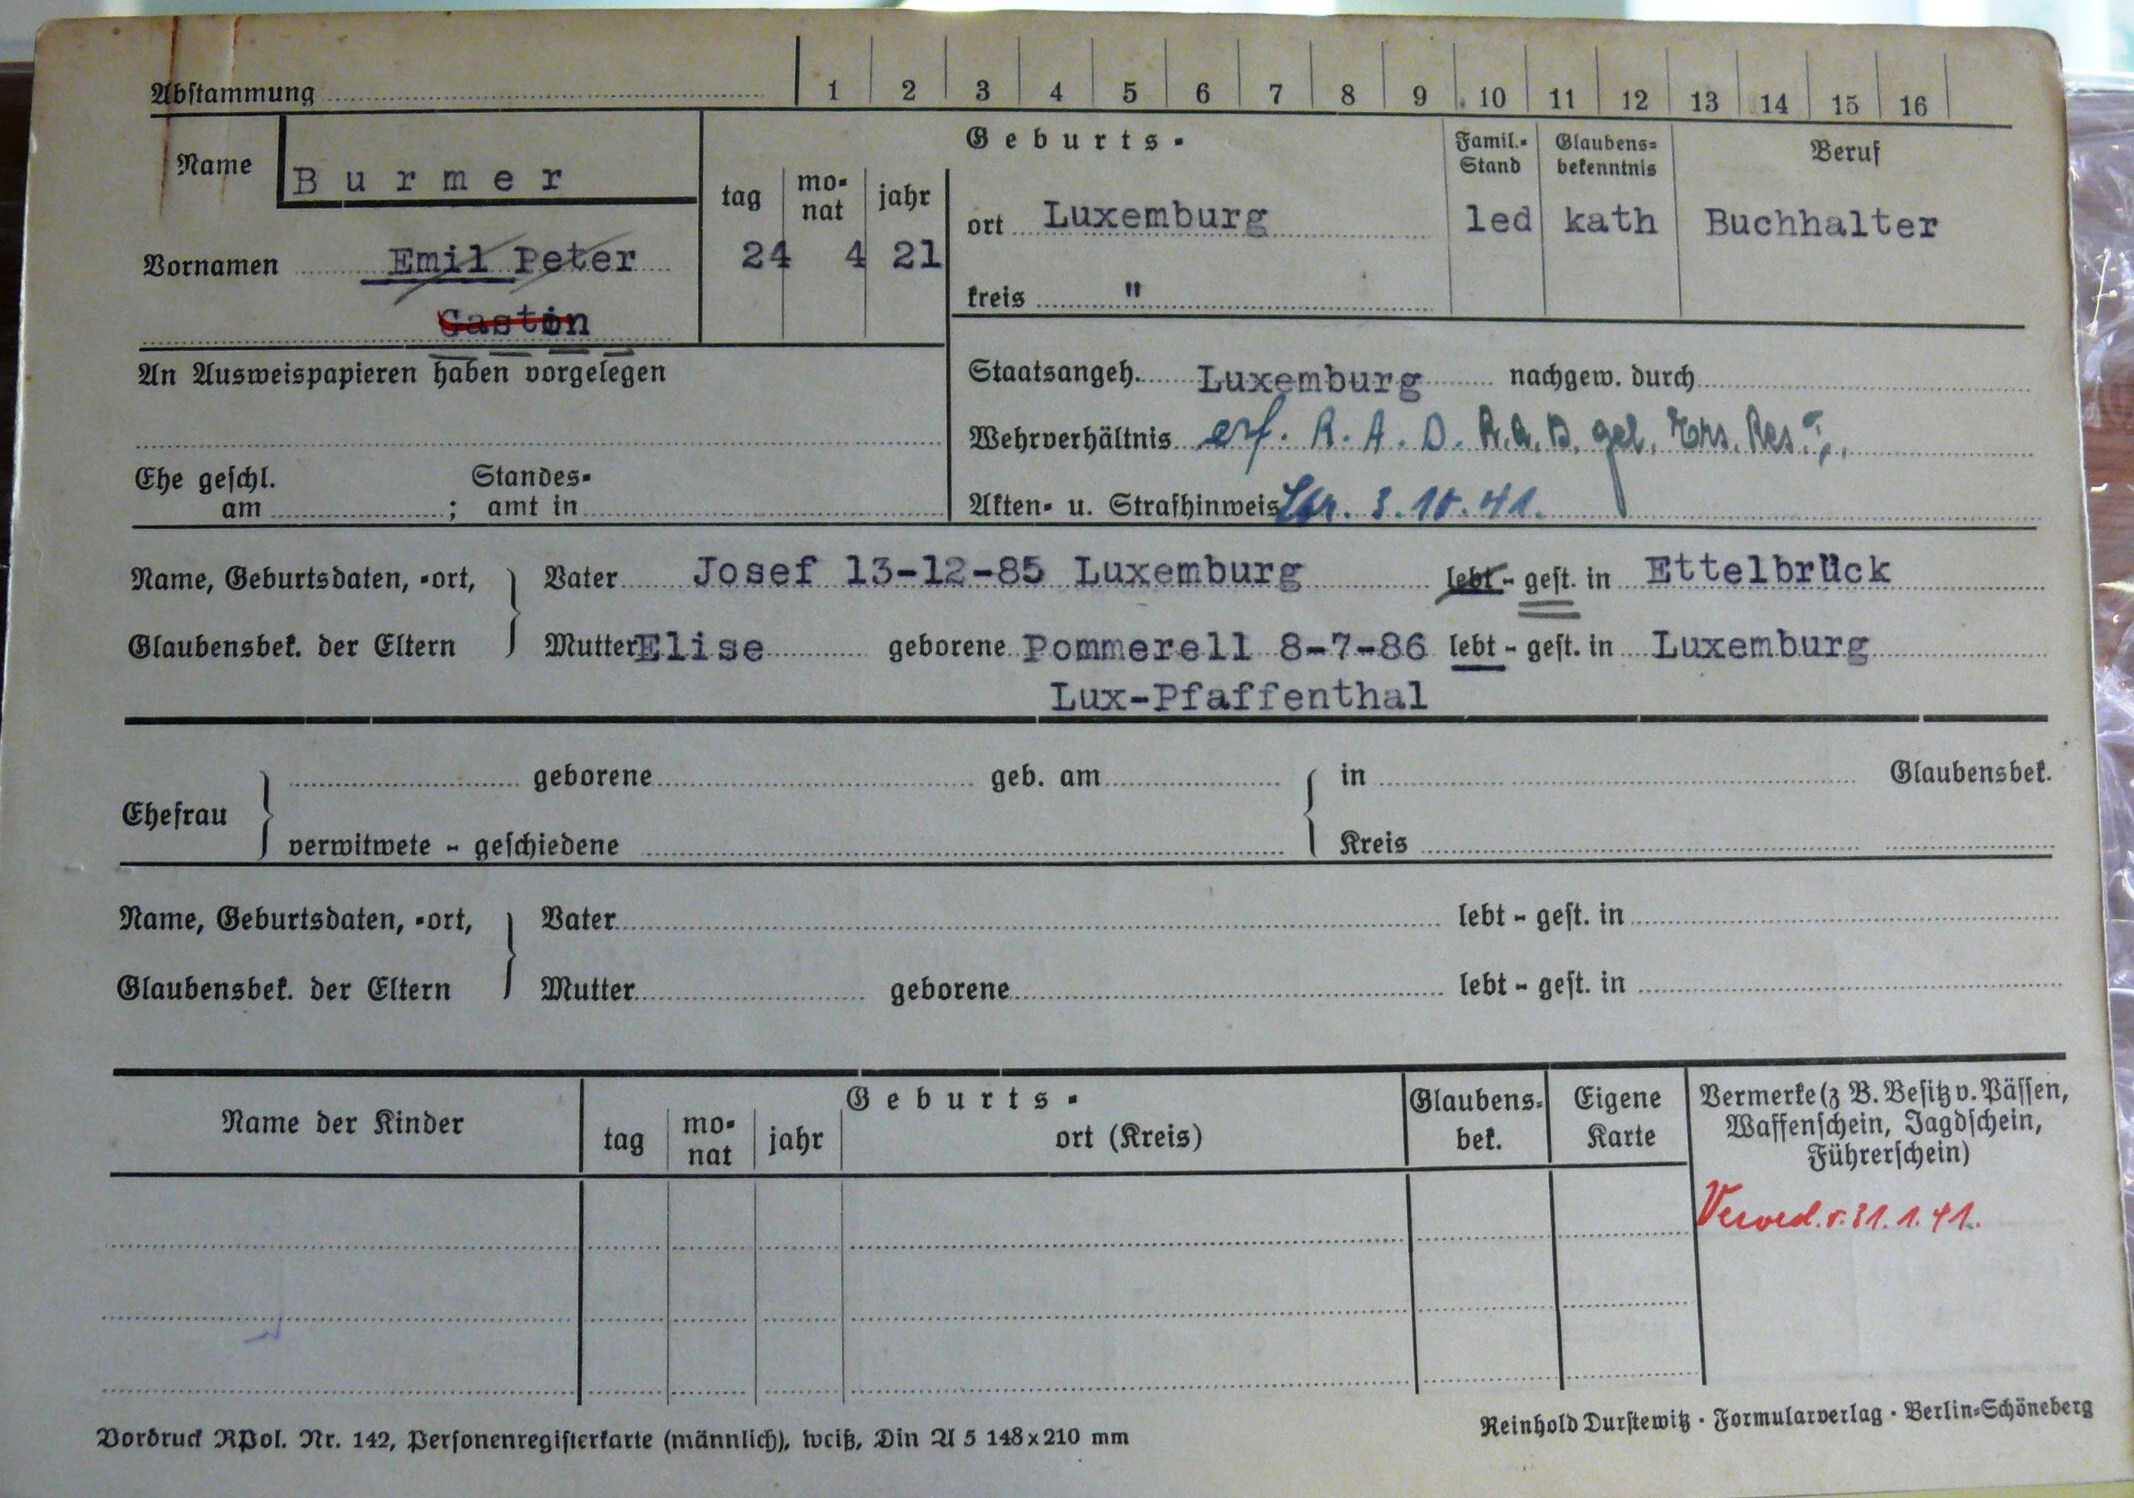 Abstammung 1 2 3 4 5 6 7 8 9 10 11 12 13 14 15 16
Name Burmer
Geburts-
tag monat jahr
Famil.-Stand
Glaubens-bekenntnis
Beruf
Vornamen Emil Peter
Gaston
24 4 21
ort Luxemburg
led kath Buchhalter
kreis "
An Ausweispapieren haben vorgelegen
Staatsangeh. Luxemburg nachgew. durch
Wehrverhältnis erf. R.A.D. R.A.D. gel. Ers. Res. I,
Ehe geschl. am ; Standesamt in
Akten- u. Strafhinweis 3.10.41.
Name, Geburtsdaten, -ort, Vater Josef 13-12-85 Luxemburg lebt - gest. in Ettelbrück
Glaubensbek. der Eltern Mutter Elise geborene Pommerell 8-7-86 lebt - gest. in Luxemburg
Lux-Pfaffenthal
Ehefrau geborene geb. am in Glaubensbek.
verwitwete - geschiedene Kreis
Name, Geburtsdaten, -ort, Vater lebt - gest. in
Glaubensbek. der Eltern Mutter geborene lebt - gest. in
Name der Kinder
Geburts-
tag monat jahr ort (Kreis)
Glaubens-bek.
Eigene Karte
Vermerke (z B. Besitz v. Pässen,
Waffenschein, Jagdschein,
Führerschein)
v. 31.1.41.
Vordruck RPol. Nr. 142, Personenregisterkarte (männlich), weiß, Din A 5 148x210 mm
Reinhold Durstewitz · Formularverlag · Berlin-Schöneberg